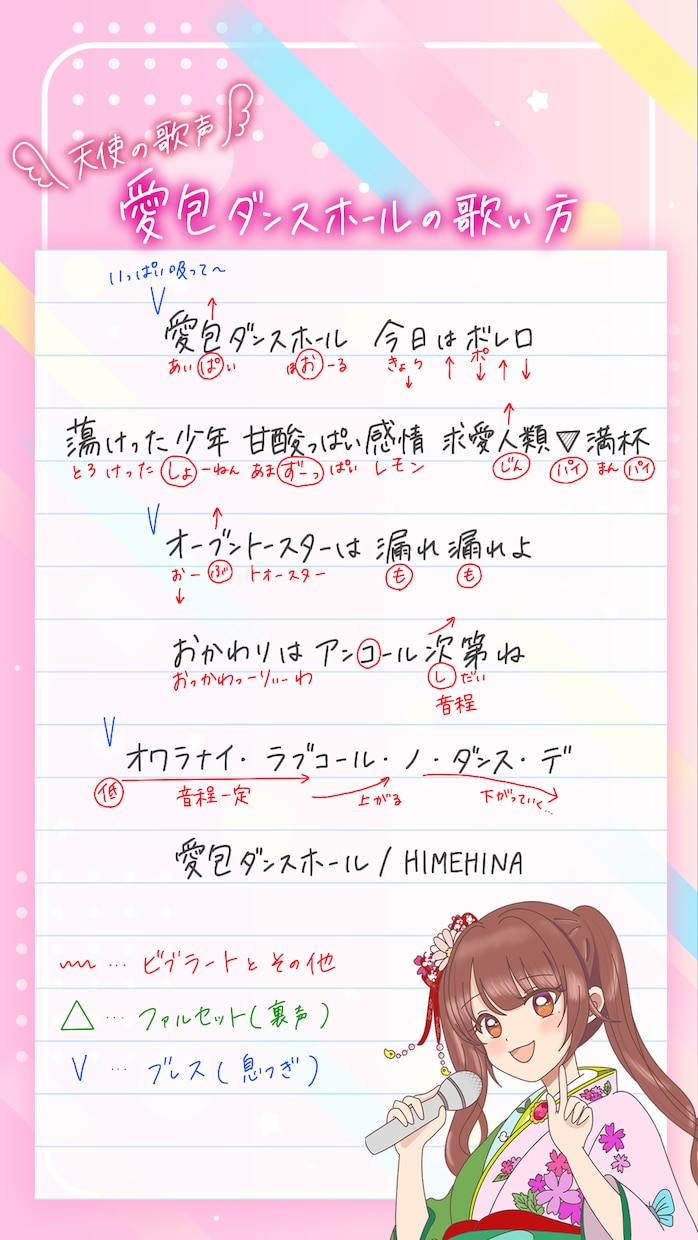 天使の歌声
愛包ダンスホールの歌い方
いっぱい吸って〜
V ↑
愛包ダンスホール 今日はボレロ
あい ぱ い ほ お ーる きょう ↓ ↑ ポ ↓ ↑ ↓
↑
蕩けった少年 甘酸っぱい感情 求愛人類▽満杯
とろ けった しょ ーねん あま ずーっ ぱい レモン じん パイ まん パイ
V ↑
オーブントースターは 漏れ漏れよ
おー ぶ トオースター も も
↓
おかわりは アンコール次第ね
おっかわっーりぃーわ し だい
音程
V
オワラナイ・ラブコール・ノ・ダンス・デ
低 音程一定 上がる 下がっていく…
愛包ダンスホール / HIMEHINA
… ビブラートとその他
△ … ファルセット(裏声)
V … ブレス(息つぎ)